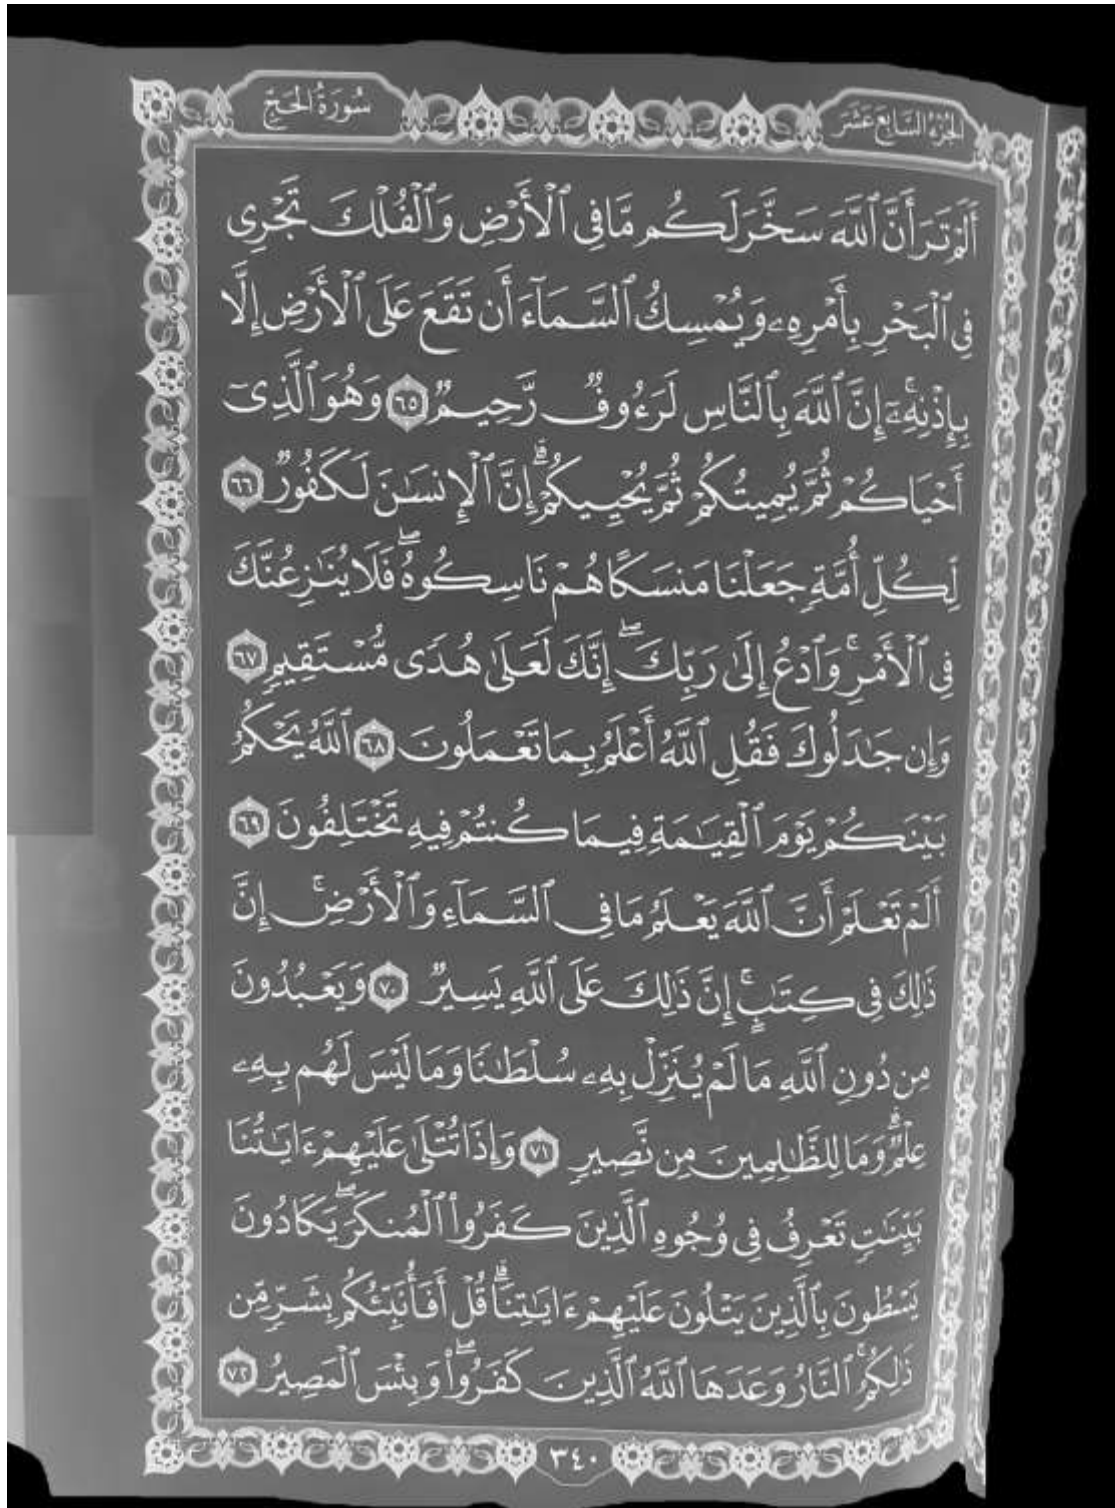 الجزء السابع عشر
سورة الحج
أَلَمْ تَرَ أَنَّ ٱللَّهَ سَخَّرَ لَكُم مَّا فِى ٱلْأَرْضِ وَٱلْفُلْكَ تَجْرِى
فِى ٱلْبَحْرِ بِأَمْرِهِۦ وَيُمْسِكُ ٱلسَّمَآءَ أَن تَقَعَ عَلَى ٱلْأَرْضِ إِلَّا
بِإِذْنِهِۦٓ ۚ إِنَّ ٱللَّهَ بِٱلنَّاسِ لَرَءُوفٌ رَّحِيمٌ ٦٥ وَهُوَ ٱلَّذِىٓ
أَحْيَاكُمْ ثُمَّ يُمِيتُكُمْ ثُمَّ يُحْيِيكُمْ ۗ إِنَّ ٱلْإِنسَٰنَ لَكَفُورٌ ٦٦
لِّكُلِّ أُمَّةٍ جَعَلْنَا مَنسَكًا هُمْ نَاسِكُوهُ ۖ فَلَا يُنَٰزِعُنَّكَ
فِى ٱلْأَمْرِ ۚ وَٱدْعُ إِلَىٰ رَبِّكَ ۖ إِنَّكَ لَعَلَىٰ هُدًى مُّسْتَقِيمٍ ٦٧
وَإِن جَٰدَلُوكَ فَقُلِ ٱللَّهُ أَعْلَمُ بِمَا تَعْمَلُونَ ٦٨ ٱللَّهُ يَحْكُمُ
بَيْنَكُمْ يَوْمَ ٱلْقِيَٰمَةِ فِيمَا كُنتُمْ فِيهِ تَخْتَلِفُونَ ٦٩
أَلَمْ تَعْلَمْ أَنَّ ٱللَّهَ يَعْلَمُ مَا فِى ٱلسَّمَآءِ وَٱلْأَرْضِ ۚ إِنَّ
ذَٰلِكَ فِى كِتَٰبٍ ۚ إِنَّ ذَٰلِكَ عَلَى ٱللَّهِ يَسِيرٌ ٧٠ وَيَعْبُدُونَ
مِن دُونِ ٱللَّهِ مَا لَمْ يُنَزِّلْ بِهِۦ سُلْطَٰنًا وَمَا لَيْسَ لَهُم بِهِۦ
عِلْمٌ ۗ وَمَا لِلظَّٰلِمِينَ مِن نَّصِيرٍ ٧١ وَإِذَا تُتْلَىٰ عَلَيْهِمْ ءَايَٰتُنَا
بَيِّنَٰتٍ تَعْرِفُ فِى وُجُوهِ ٱلَّذِينَ كَفَرُوا۟ ٱلْمُنكَرَ ۖ يَكَادُونَ
يَسْطُونَ بِٱلَّذِينَ يَتْلُونَ عَلَيْهِمْ ءَايَٰتِنَا ۗ قُلْ أَفَأُنَبِّئُكُم بِشَرٍّ مِّن
ذَٰلِكُمُ ۚ ٱلنَّارُ وَعَدَهَا ٱللَّهُ ٱلَّذِينَ كَفَرُوا۟ ۖ وَبِئْسَ ٱلْمَصِيرُ ٧٢
٣٤٠